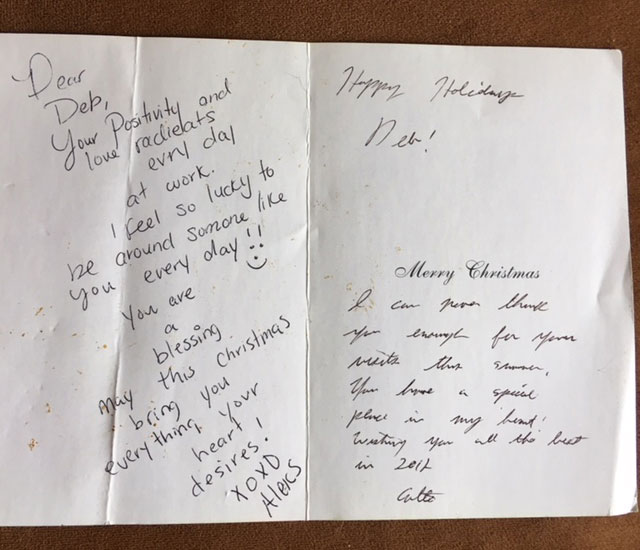 Dear
Deb,
Your Positivity and
love radieats
evry day
at work.
I feel so lucky to
be around somone like
you every day!!
You are
a
blessing
may this Christmas
bring you
everything your
heart
desires!
XOXO
Happy Holidays
Deb!
Merry Christmas
I can never thank
you enough for your
visits this summer.
You have a special
place in my heart!
Wishing you all the best
in